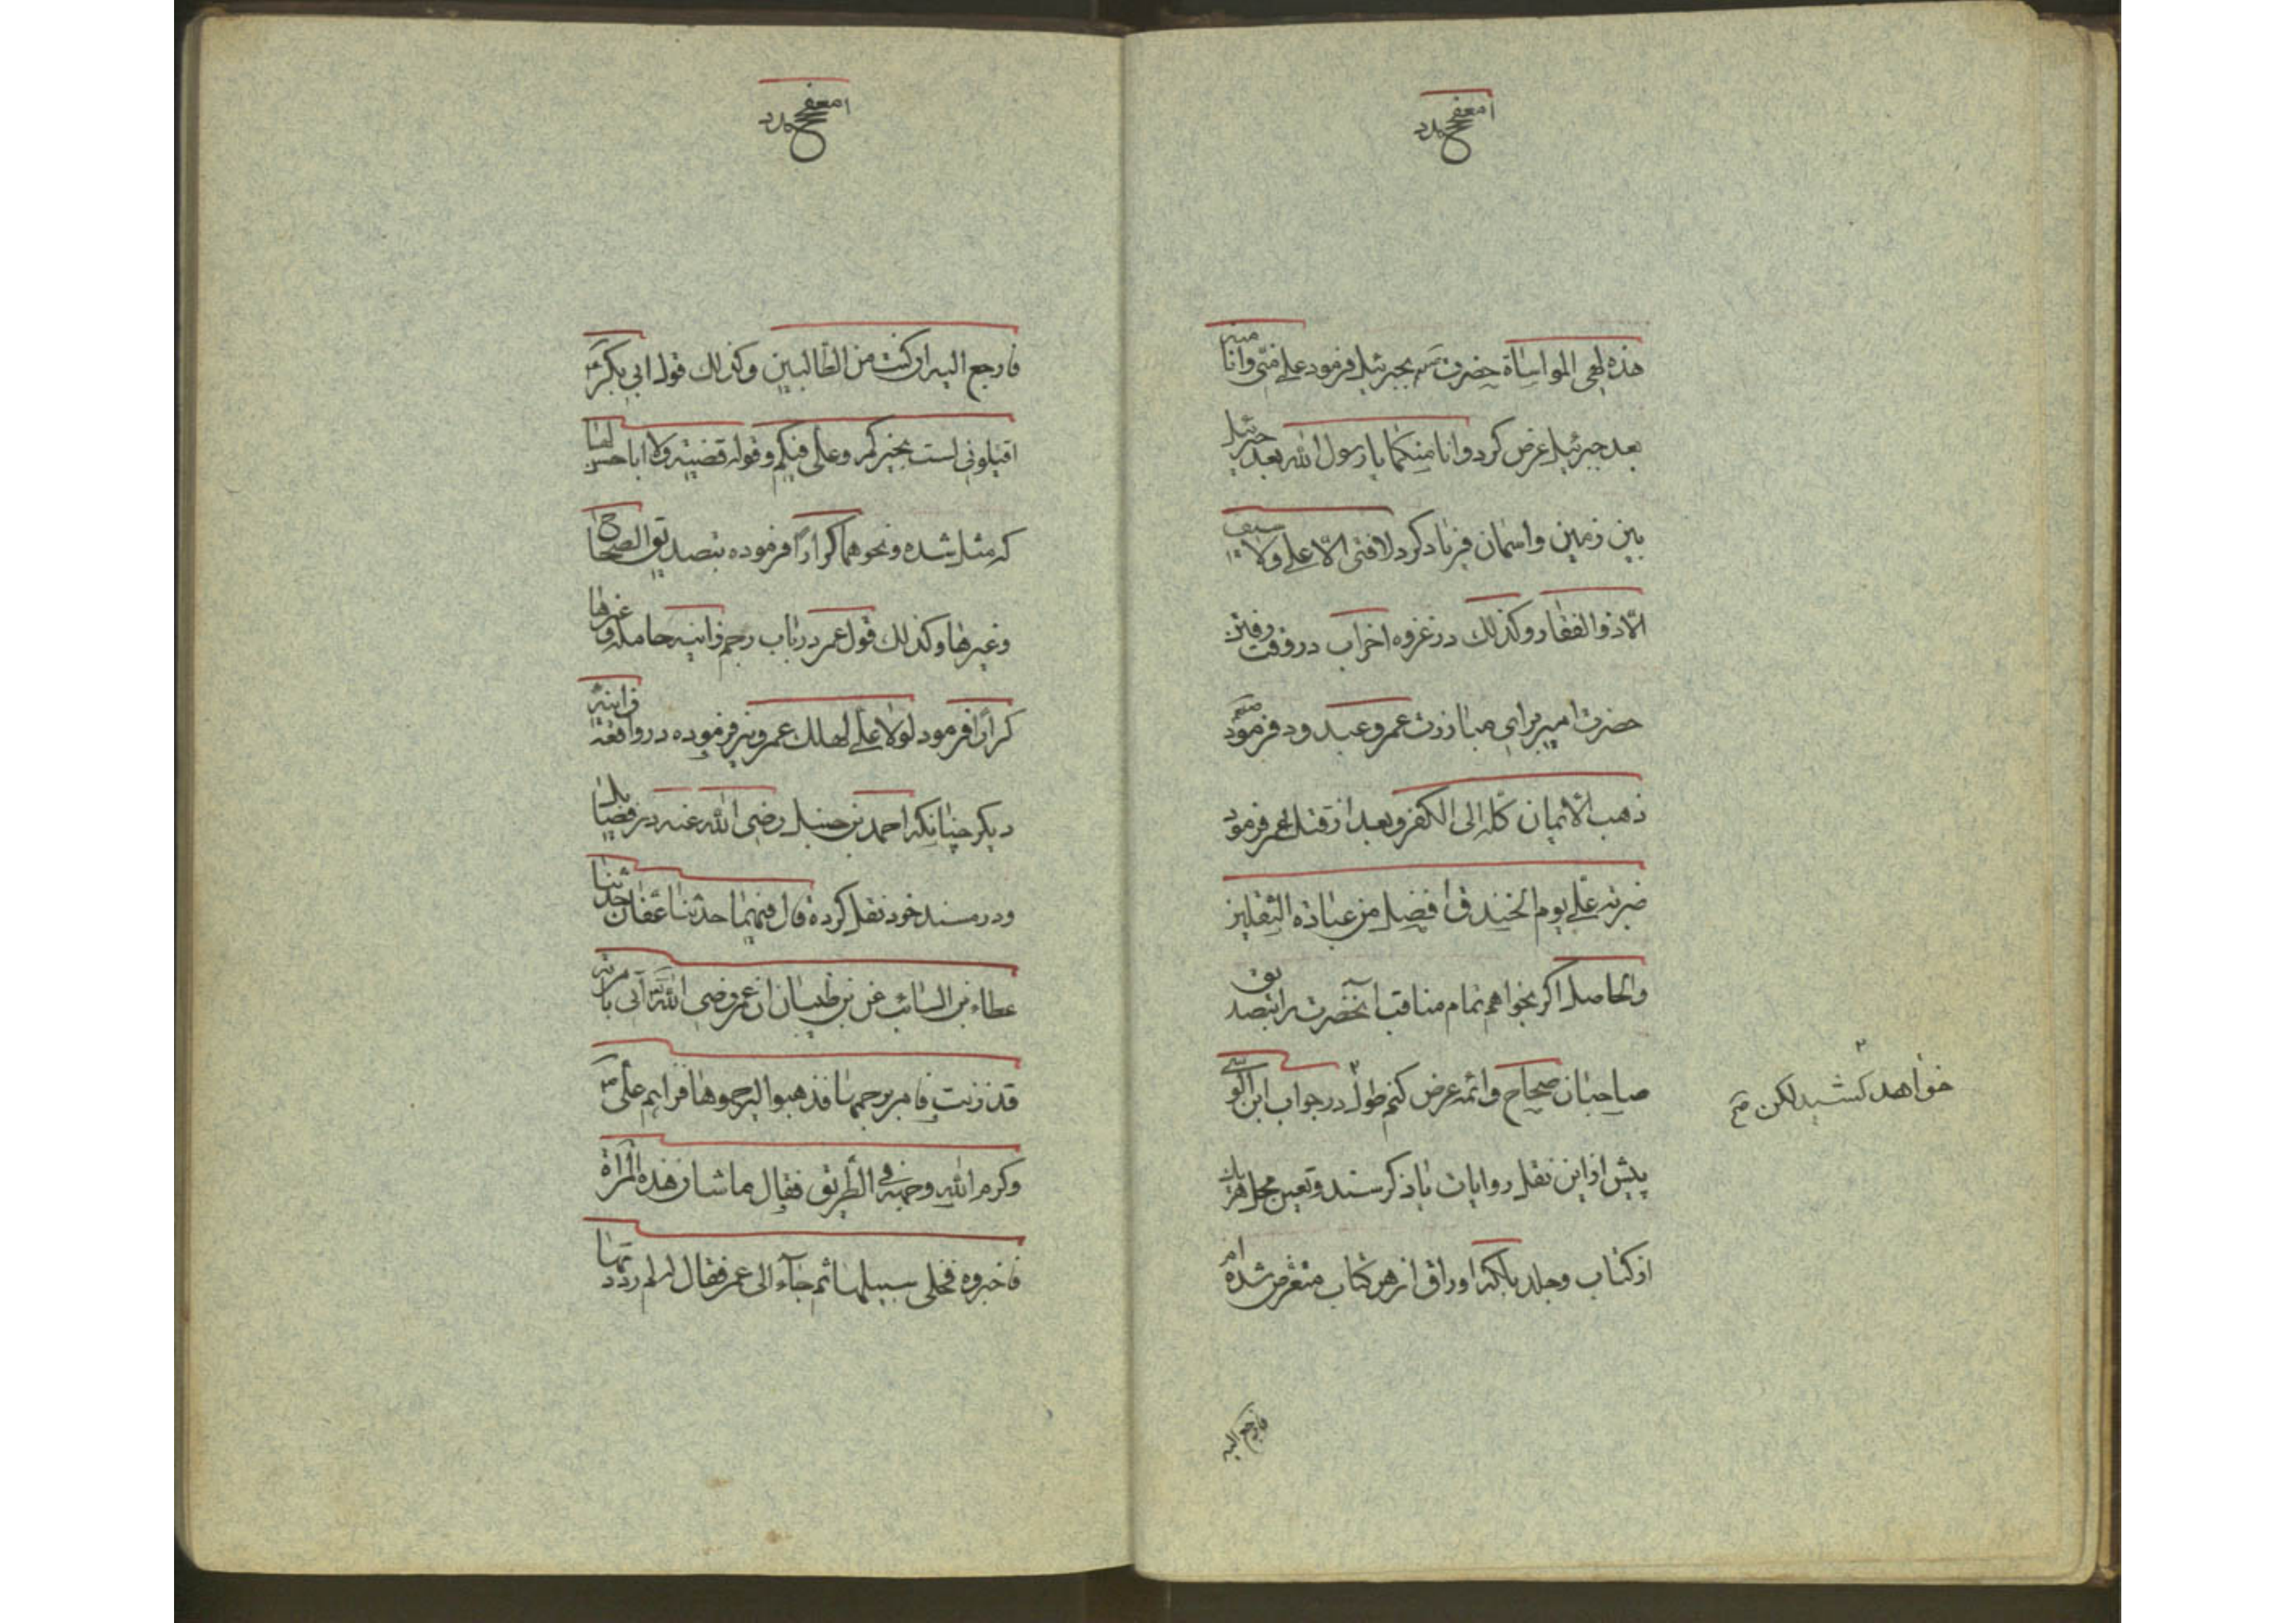 هذه لهی المواساة حضرت بجبرئیل فرمود علی منّی وانا منه
بعد جبرئیل عرض کرد وانا منکما یا رسول الله بعد جبرئیل
بین زمین واسمان فریاد کرد لا فتی الّا علی ولا سیف
الّا ذو الفقار وکذلک در غزوه احزاب در وقت رفتن
حضرت امیر برای مبارزت عمرو عبد ود فرمود
ذهب الایمان کله الی الکفر وبعد از قتل عمر فرمود
ضربة علی یوم الخندق افضل من عبادة الثقلین
والحاصل اکر بخواهم تمام مناقب آنحضرت را بتصدیق
صاحبان صحاح وائمه عرض کنم طول در جواب ابن الوسی
خواهد کشید لکن
پیش از این نقل روایات باذکر سند وتعین محل هریک
از کتاب وجلد بلکه اوراق از هر کتاب متعرض شده ام
فارجع الیه
فارجع الیه ان کنت من الطالبین وکذلک قول ابی بکر
اقیلونی لست بخیرکم وعلی فیکم وقوله قضیة ولا ابا حسن لها
که مثل شده ونحوهما کرارًا فرموده بتصدیق الصحاح
وغیرها وکذلک قول عمر در باب رجم زانیه حامله وغیرها
کرارًا فرمود لولا علی لهلك عمر ونیز فرموده در واقعه زانیهٔ
دیکر چنانکه احمد بن حنبل رضی الله عنه در فضایل
ودر مسند خود نقل کرده قال فیهما حدثنا عفان حدثنا
عطاء بن السائب عن بن ظبیان ان عمر رضی الله اتی بامرأة
قد زنت فامر برجمها فذهبوا لیرجموها فراهم علی
وکرم الله وجهه فی الطریق فقال ما شان هذه المراة
فاخبروه فخلی سبیلها ثم جآء الی عمر فقال له لم رددتها